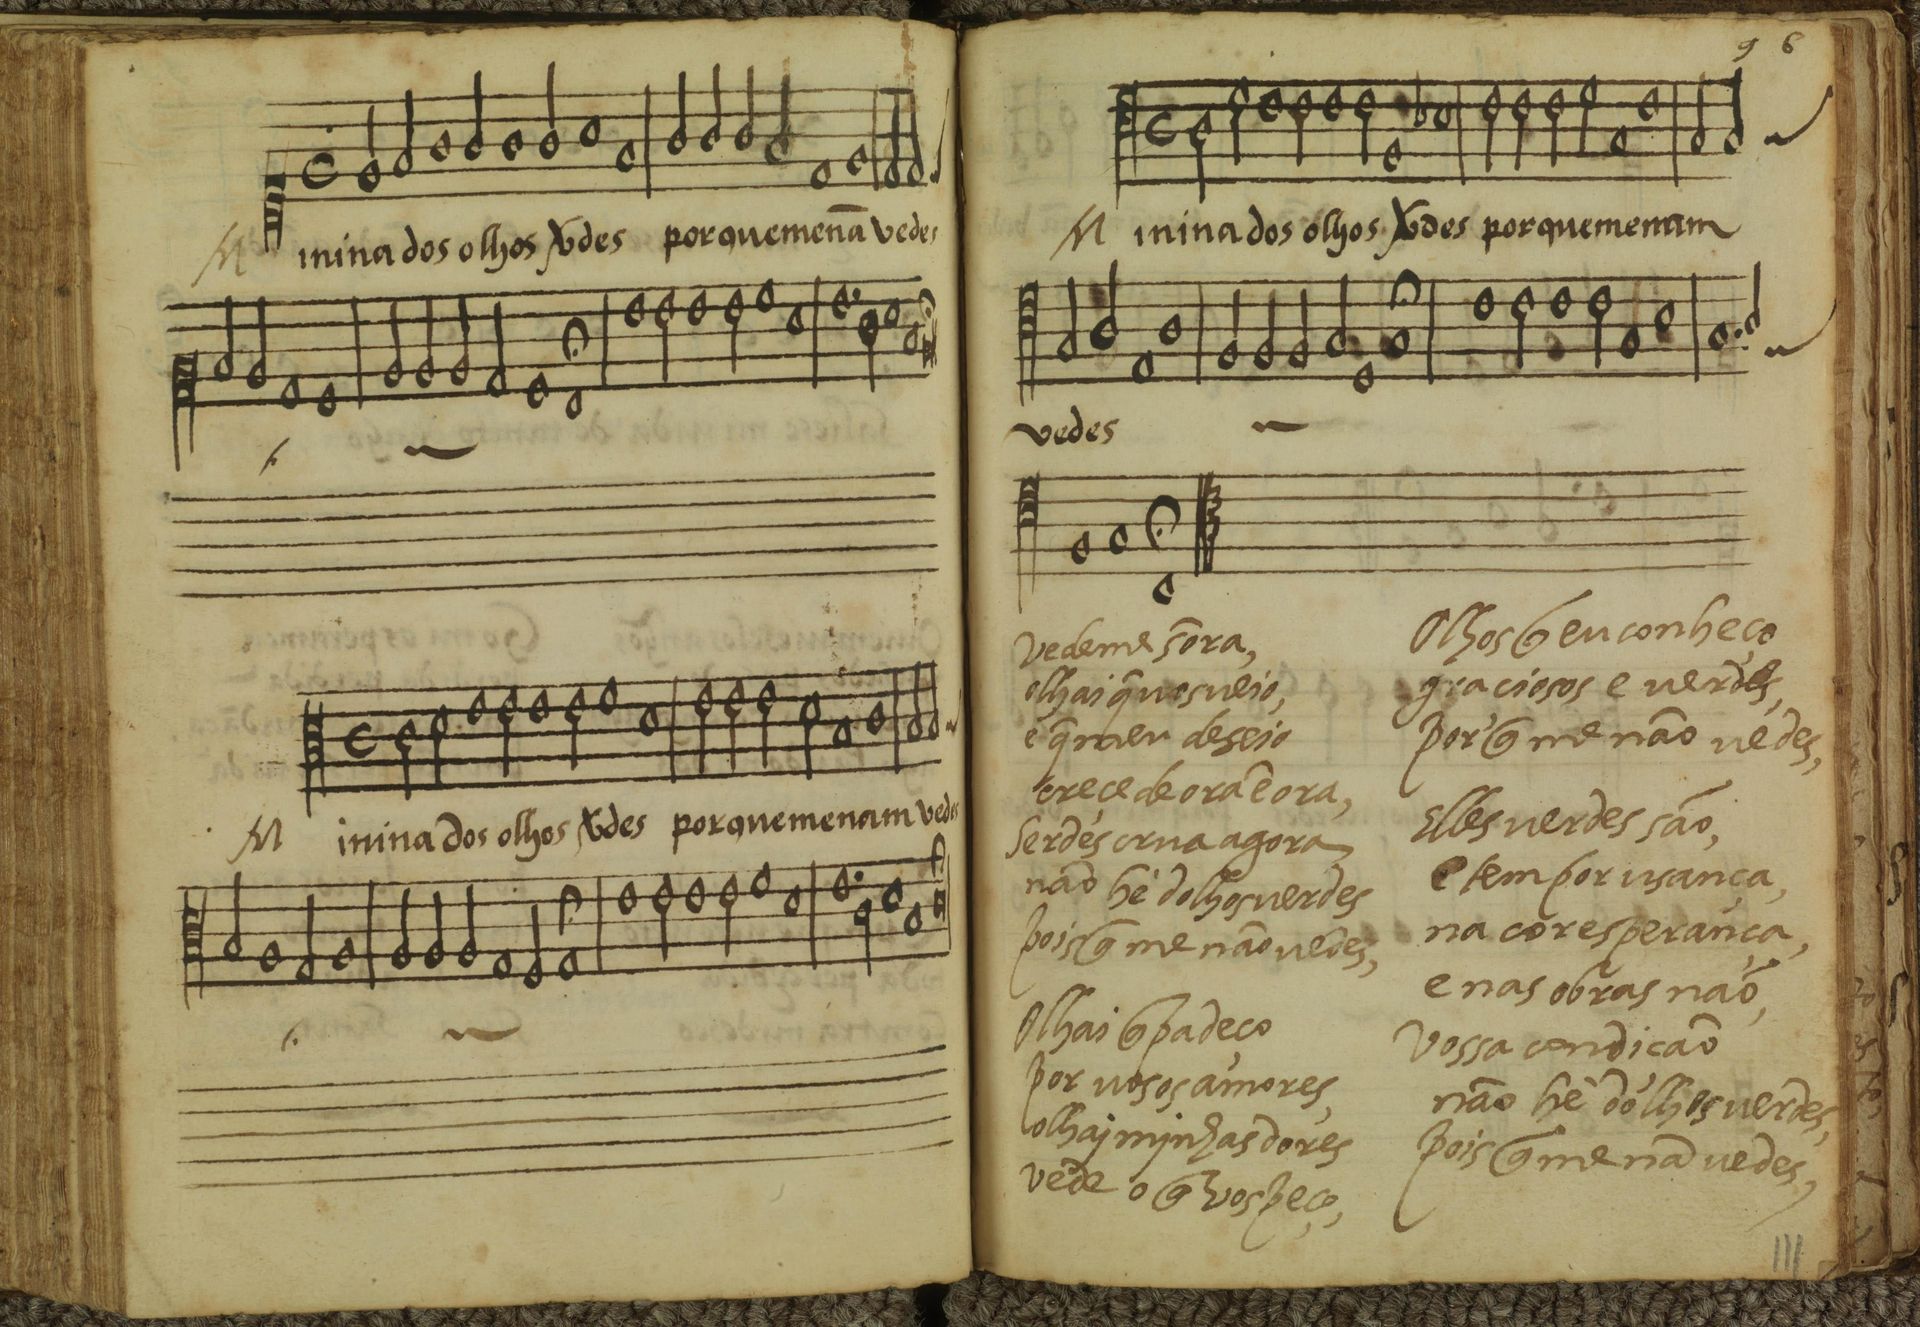 Minina dos olhos v̄des porquemenā vedes
Minina dos olhos v̄des porquemenam vedes
96
Minina dos olhos v̄des porquemenam
vedes
vedeme sõra,
olhai q̃ vos veio,
e q̃ meu deseio
creçe de ora ẽ ora,
Serdes crua agora
não hé dolhos verdes
pois q̃ me não vedes,
Olhai q̃ padeço
por vosos amores,
olhaj minhas dores
vede o q̃ vos peço,
Olhos q̃ eu conheço
graciosos e verdes,
por q̃ me não vedes,
Elles verdes são,
e tem por usança,
na cor esperança,
e nas obras não,
Vossa condicaõ
não hé dólhos verdes,
pois q̃ me nã vedes,
111